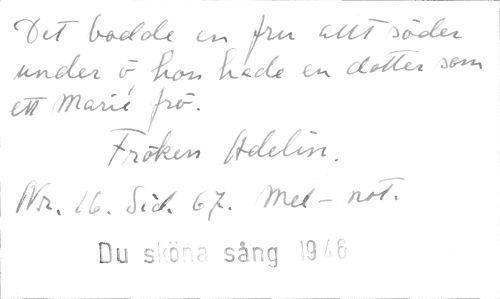 Det bodde en fru allt söder
under ö, hon hade en dotter som
ett Marie frö.
Fröken Adelin.
Nr. 16. Sid. 67. Mel-not.
Du sköna sång 1946